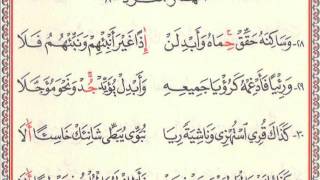 ٢٨- وَسَاكِنَهُ حَقِّقْ حِمَاهُ وَأَبْدِلَنْ إِذًا غَيْرَ أَنْبِئْهُمْ وَنَبِّئْهُمُ فَلَا
٢٩- وَرِئْيًا فَأَدْغِمْهُ كَرُؤْيَا جَمِيعِهِ وَأَبْدِلْ يُؤَيِّدْ جُدْ وَنَحْوَ مُؤَجَّلَا
٣٠- كَذَاكَ قُرِي اسْتُهْزِي وَنَاشِيَةً رِيَا نُبَوِّي يُبَطِّي شَانِئَكَ خَاسِئًا أَلَا